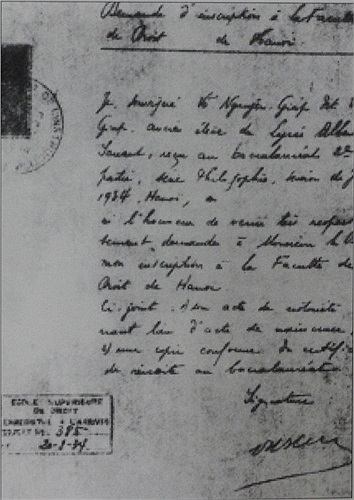 Demande d'inscription à la Faculté
de Droit de Hanoi
Je, soussigné Võ Nguyên Giap dit
Giap, ancien élève du lycée Albert
Sarraut, reçu au baccalauréat 2me
partie, série Philosophie, session de
1934, Hanoi,
ai l'honneur de venir très respec
tueusement demander à Monsieur le
mon inscription à la Faculté de
Droit de Hanoi
Ci-joint: 1) son acte de notoriété
tenant lieu d'acte de naissance
2) une copie conforme du certifi
de réussite au baccalauréat
Signature
ECOLE SUPERIEURE
DE DROIT
L'ARRIVÉE
No. 385